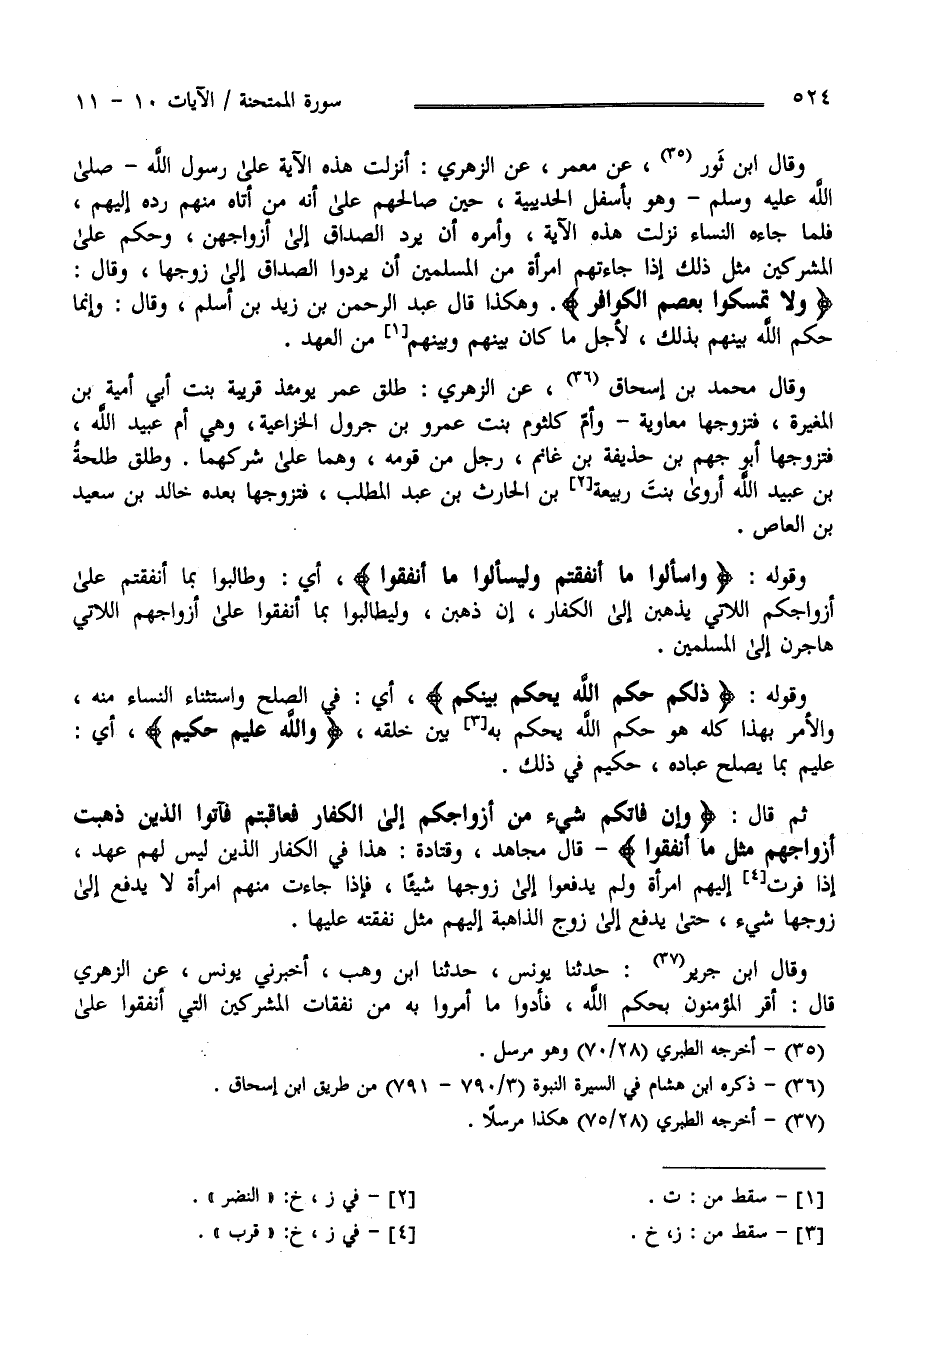 ٥٢٤ سورة الممتحنة / الآيات ١٠ - ١١
وقال ابن ثَور (٣٥) ، عن معمر ، عن الزهري : أنزلت هذه الآية علىٰ رسول اللَّه - صلىٰ
اللَّه عليه وسلم - وهو بأسفل الحديبية ، حين صالحهم علىٰ أنه من أتاه منهم رده إليهم ،
فلما جاءه النساء نزلت هذه الآية ، وأمره أن يرد الصداق إلىٰ أزواجهن ، وحكم علىٰ
المشركين مثل ذلك إذا جاءتهم امرأة من المسلمين أن يردوا الصداق إلىٰ زوجها ، وقال :
﴿ ولا تمسكوا بعصم الكوافر ﴾. وهكذا قال عبد الرحمن بن زيد بن أسلم ، وقال : وإنما
حكم اللَّه بينهم بذلك ، لأجل ما كان بينهم وبينهم[١] من العهد .
وقال محمد بن إسحاق (٣٦) ، عن الزهري : طلق عمر يومئذ قريبة بنت أبي أمية بن
المغيرة ، فتزوجها معاوية - وأمّ كلثوم بنت عمرو بن جرول الخزاعية، وهي أم عبيد اللَّه ،
فتزوجها أبو جهم بن حذيفة بن غانم ، رجل من قومه ، وهما علىٰ شركهما . وطلق طلحةُ
بن عبيد اللَّه أروىٰ بنتَ ربيعة[٢] بن الحارث بن عبد المطلب ، فتزوجها بعده خالد بن سعيد
بن العاص .
وقوله : ﴿ واسألوا ما أنفقتم وليسألوا ما أنفقوا ﴾ ، أي : وطالبوا بما أنفقتم علىٰ
أزواجكم اللاتي يذهبن إلىٰ الكفار ، إن ذهبن ، وليطالبوا بما أنفقوا علىٰ أزواجهم اللاتي
هاجرن إلىٰ المسلمين .
وقوله : ﴿ ذلكم حكم اللَّه يحكم بينكم ﴾ ، أي : في الصلح واستثناء النساء منه ،
والأمر بهذا كله هو حكم اللَّه يحكم به[٣] بين خلقه ، ﴿ واللَّه عليم حكيم ﴾ ، أي :
عليم بما يصلح عباده ، حكيم في ذلك .
ثم قال : ﴿ وإن فاتكم شيء من أزواجكم إلىٰ الكفار فعاقبتم فآتوا الذين ذهبت
أزواجهم مثل ما أنفقوا ﴾ - قال مجاهد ، وقتادة : هذا في الكفار الذين ليس لهم عهد ،
إذا فرت[٤] إليهم امرأة ولم يدفعوا إلىٰ زوجها شيئًا ، فإذا جاءت منهم امرأة لا يدفع إلىٰ
زوجها شيء ، حتىٰ يدفع إلىٰ زوج الذاهبة إليهم مثل نفقته عليها .
وقال ابن جرير(٣٧) : حدثنا يونس ، حدثنا ابن وهب ، أخبرني يونس ، عن الزهري
قال : أقر المؤمنون بحكم اللَّه ، فأدوا ما أمروا به من نفقات المشركين التي أنفقوا علىٰ
(٣٥) - أخرجه الطبري (٧٠/٢٨) وهو مرسل .
(٣٦) - ذكره ابن هشام في السيرة النبوة (٧٩٠/٣ - ٧٩١) من طريق ابن إسحاق .
(٣٧) - أخرجه الطبري (٧٥/٢٨) هكذا مرسلًا .
[١] - سقط من : ت . [٢] - في ز ، خ: « النضر » .
[٣] - سقط من : ز، خ . [٤] - في ز ، خ: « قرب » .